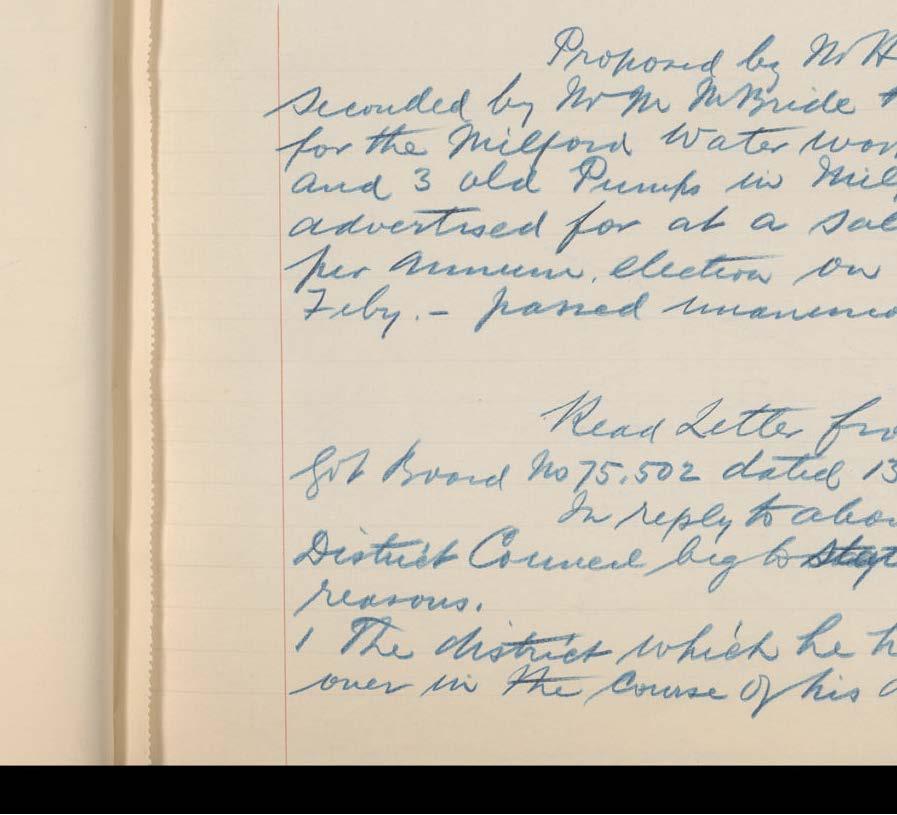 Proposed by Mr H
seconded by Mr M McBride t
for the Milford Water wor
and 3 old Pumps in Mil
advertised for at a sal
per annum. election on
Feby. - passed unanimo
Read Letter fro
Govt Board No 75.502 dated 13
In reply to abov
District Council beg to state
reasons.
1 The district which he h
over in the course of his d